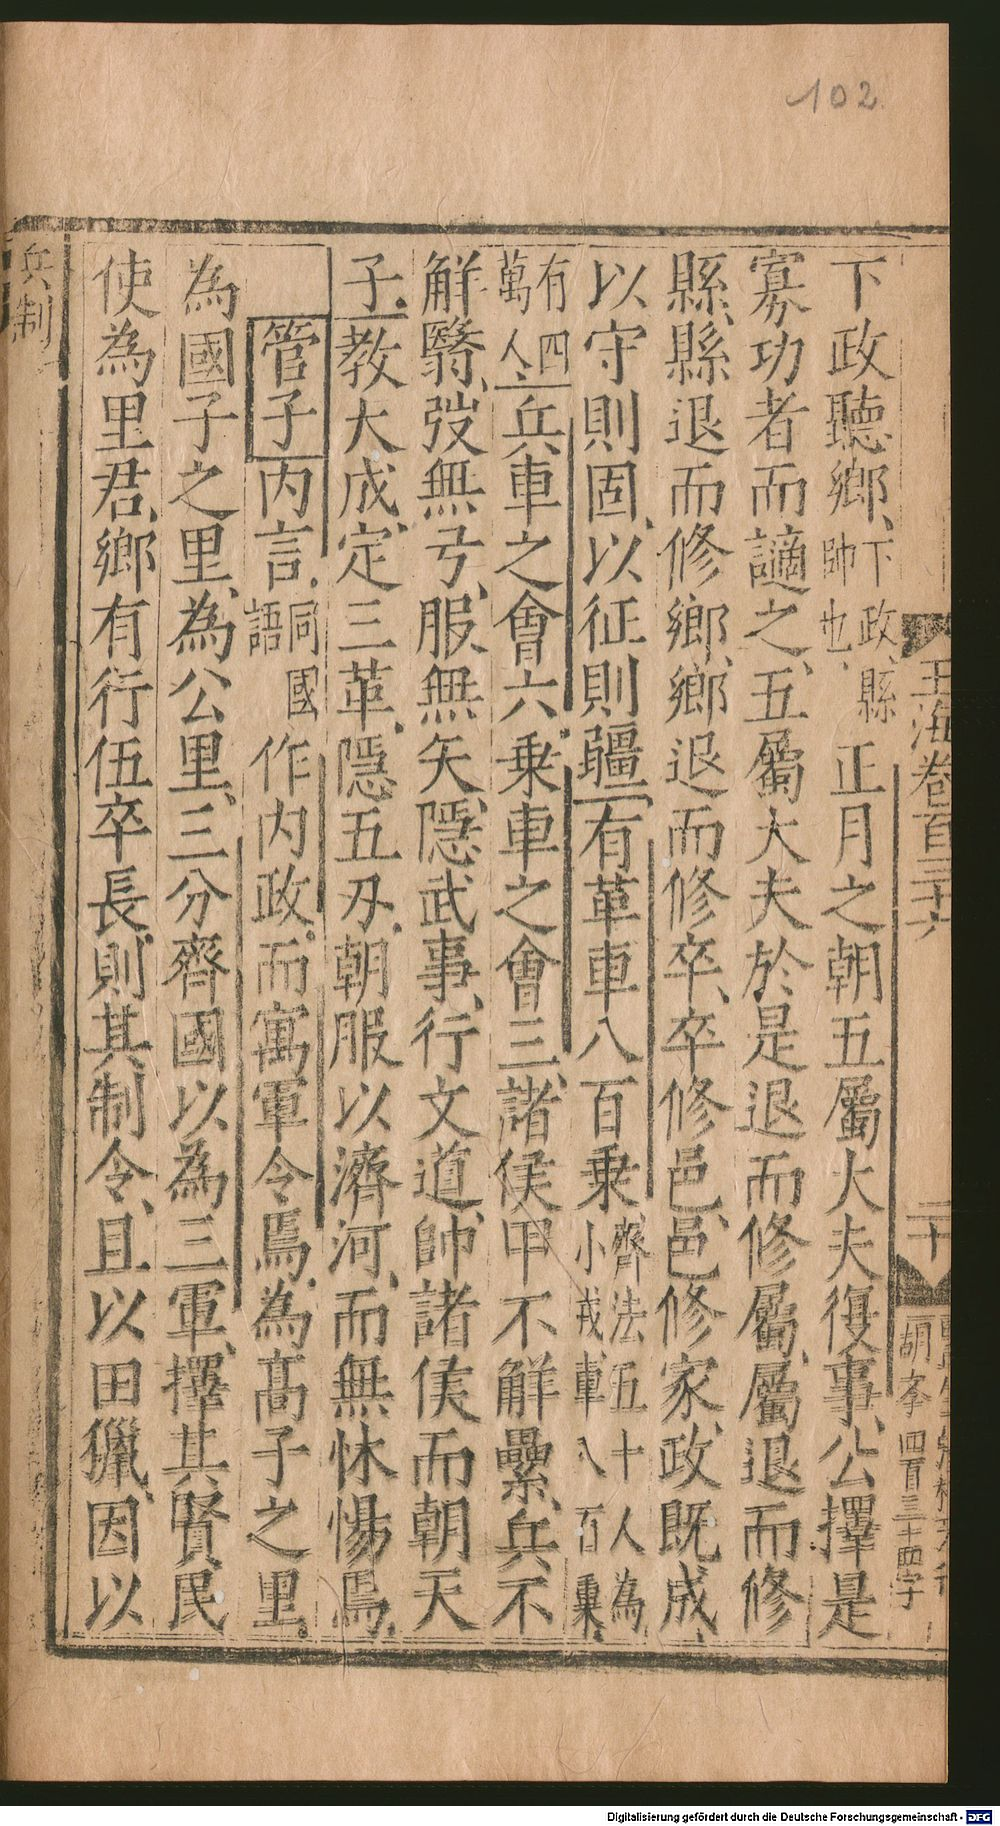 102
玉海卷百三十六
二十
胡李四百三十四字
下政聽鄉下政縣帥也正月之朝五屬大夫復事公擇是
寡功者而謫之五屬大夫於是退而修屬屬退而修
縣縣退而修鄉鄉退而修卒卒修邑邑修家政既成
以守則固以征則彊有革車八百乗齊法五十人為小戎車八百乗
有四萬人兵車之會六乗車之會三諸侯甲不觧纍兵不
觧翳弢無弓服無矢隱武事行文道帥諸侯而朝天
子教大成定三革隱五刃朝服以濟河而無怵惕焉
管子内言同國語作内政而寓軍令焉為髙子之里
為國子之里為公里三分齊國以為三軍擇其賢民
使為里君鄉有行伍卒長則其制令且以田獵因以
兵制
Digitalisierung gefördert durch die Deutsche Forschungsgemeinschaft - DFG